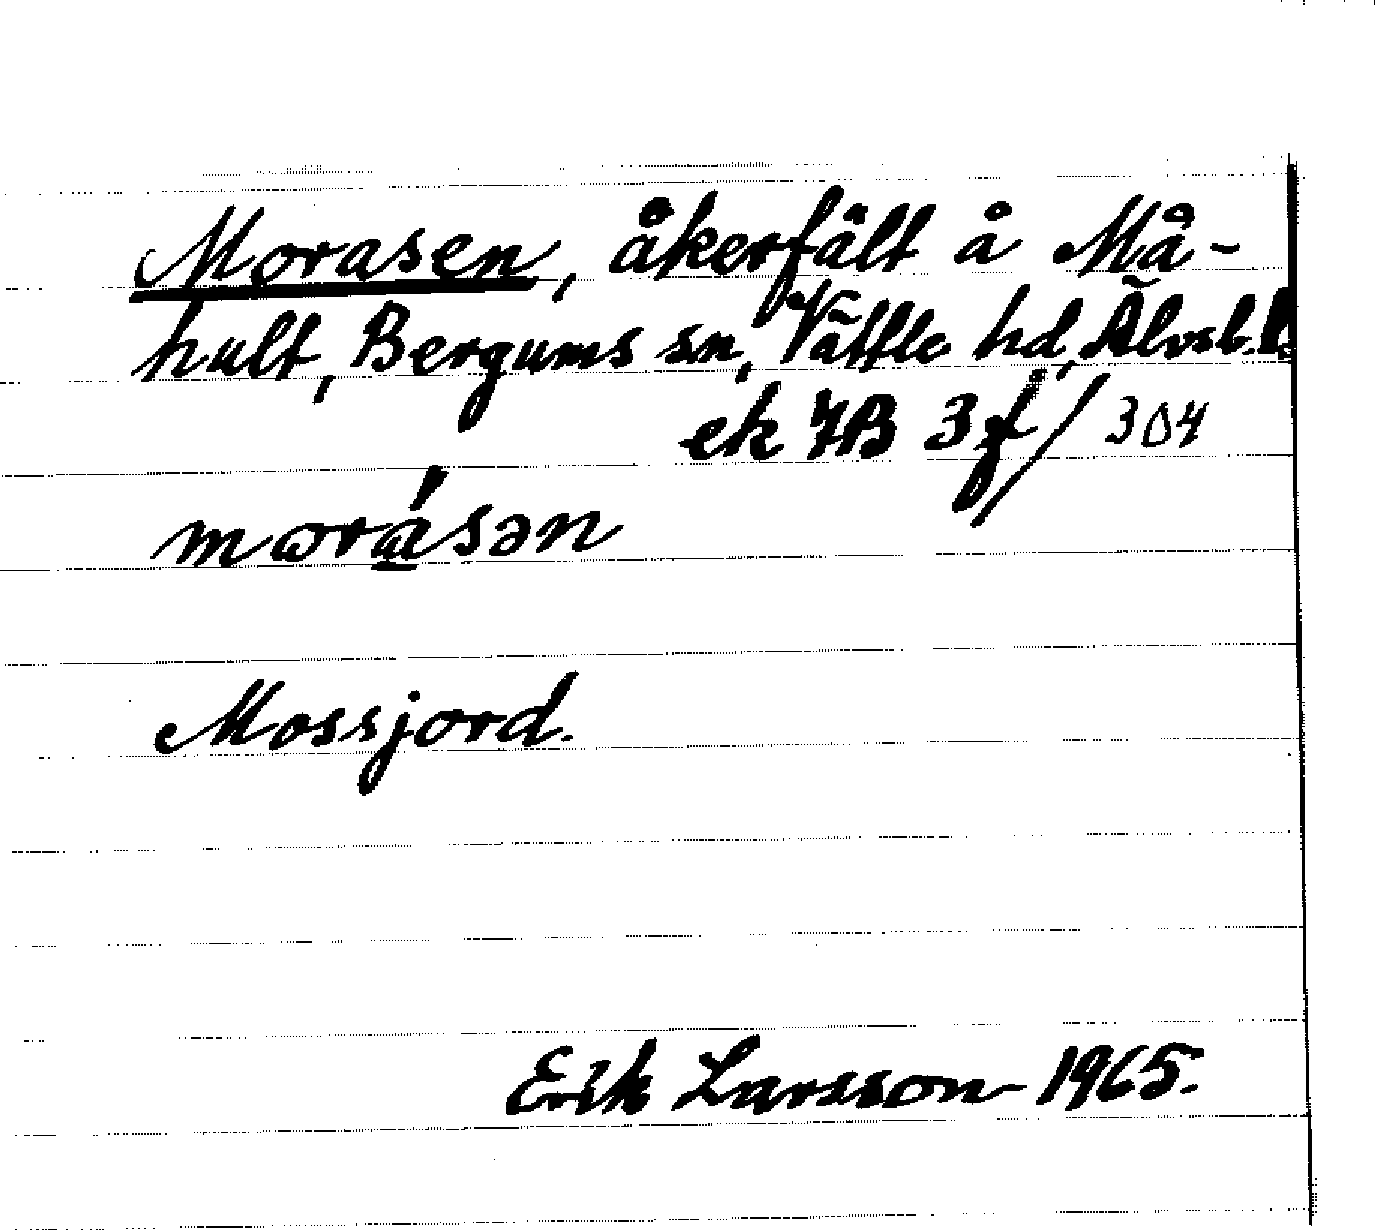 Morasen, åkerfält å Må-
hult, Bergums sn, Vättle hd, Älvsb. l.
ek 7B 3f/304
morásən
Mossjord.
Erik Larsson 1965.